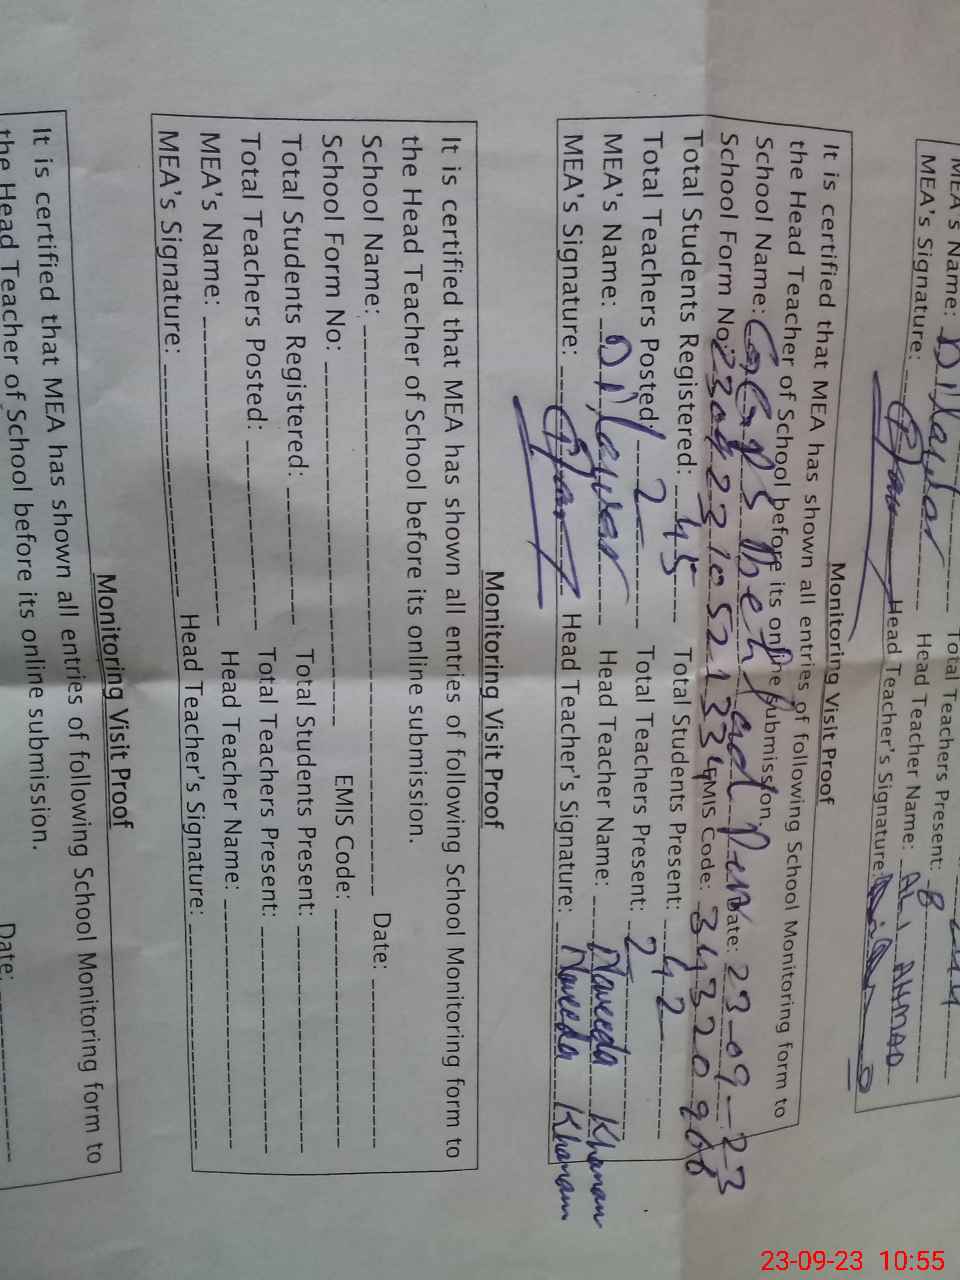 MEA's Name: Dilawar Total Teachers Present: 8
MEA's Name: Dilawar Head Teacher Name: ALI AHMAD
MEA's Signature: Head Teacher's Signature:
Monitoring Visit Proof
It is certified that MEA has shown all entries of following School Monitoring form to
the Head Teacher of School before its online submission.
School Name: GGPS Date: 23-09-23
School Form No: EMIS Code: 34320
Total Students Registered: 45 Total Students Present: 42
Total Teachers Posted: 2 Total Teachers Present: 2
MEA's Name: Dilawar Head Teacher Name: Naveeda Khanam
MEA's Signature: Head Teacher's Signature: Naveeda Khanam
Monitoring Visit Proof
It is certified that MEA has shown all entries of following School Monitoring form to
the Head Teacher of School before its online submission.
School Name: Date:
School Form No: EMIS Code:
Total Students Registered: Total Students Present:
Total Teachers Posted: Total Teachers Present:
MEA's Name: Head Teacher Name:
MEA's Signature: Head Teacher's Signature:
Monitoring Visit Proof
It is certified that MEA has shown all entries of following School Monitoring form to
the Head Teacher of School before its online submission.
Date:
23-09-23 10:55